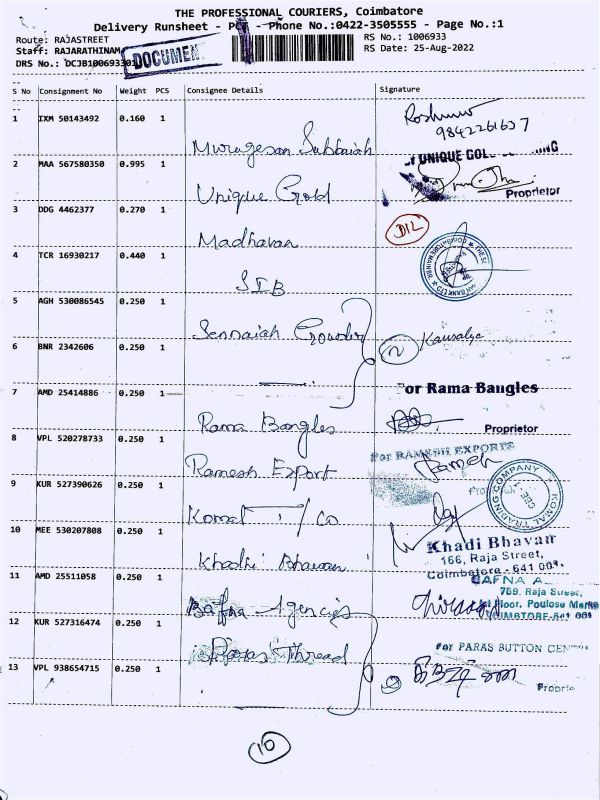 THE PROFESSIONAL COURIERS, Coimbatore
Delivery Runsheet - Phone No.:0422-3505555 - Page No.:1
Route: RAJASTREET
RS No.: 1006933
Staff: RAJARATHINAM
RS Date: 25-Aug-2022
DRS No.: DCJB100693301
DOCUMEN
S No Consignment No Weight PCS Consignee Details Signature
1 IXM 50143492 0.160 1 Murugesan Subbaiah
9842261637
2 MAA 567580350 0.995 1 Unique Gold
UNIQUE GOL
Proprietor
3 DDG 4462377 0.270 1 Madhavan
DIL
4 TCR 16930217 0.440 1 SIB
5 AGH 530086545 0.250 1 Sennaiah Gounder
Kausalya
6 BNR 2342606 0.250 1
7 AMD 25414886 0.250 1 Rama Bangles
For Rama Bangles
Proprietor
8 VPL 520278733 0.250 1 Ramesh Export
For RAMESH EXPORTS
9 KUR 527390626 0.250 1 Komal T/Co
KOMAL TRADING COMPANY
CBE - 1
10 MEE 530207808 0.250 1 Khadhi Bhavan
Khadi Bhavan
166, Raja Street,
Coimbatore - 641 001.
11 AMD 25511058 0.250 1 Bafna Agencies
BAFNA A
769, Raja Street,
Floor, Poulose
COIMBATORE-641 001
12 KUR 527316474 0.250 1 Paras Thread
For PARAS BUTTON CEN
13 VPL 938654715 0.250 1
10